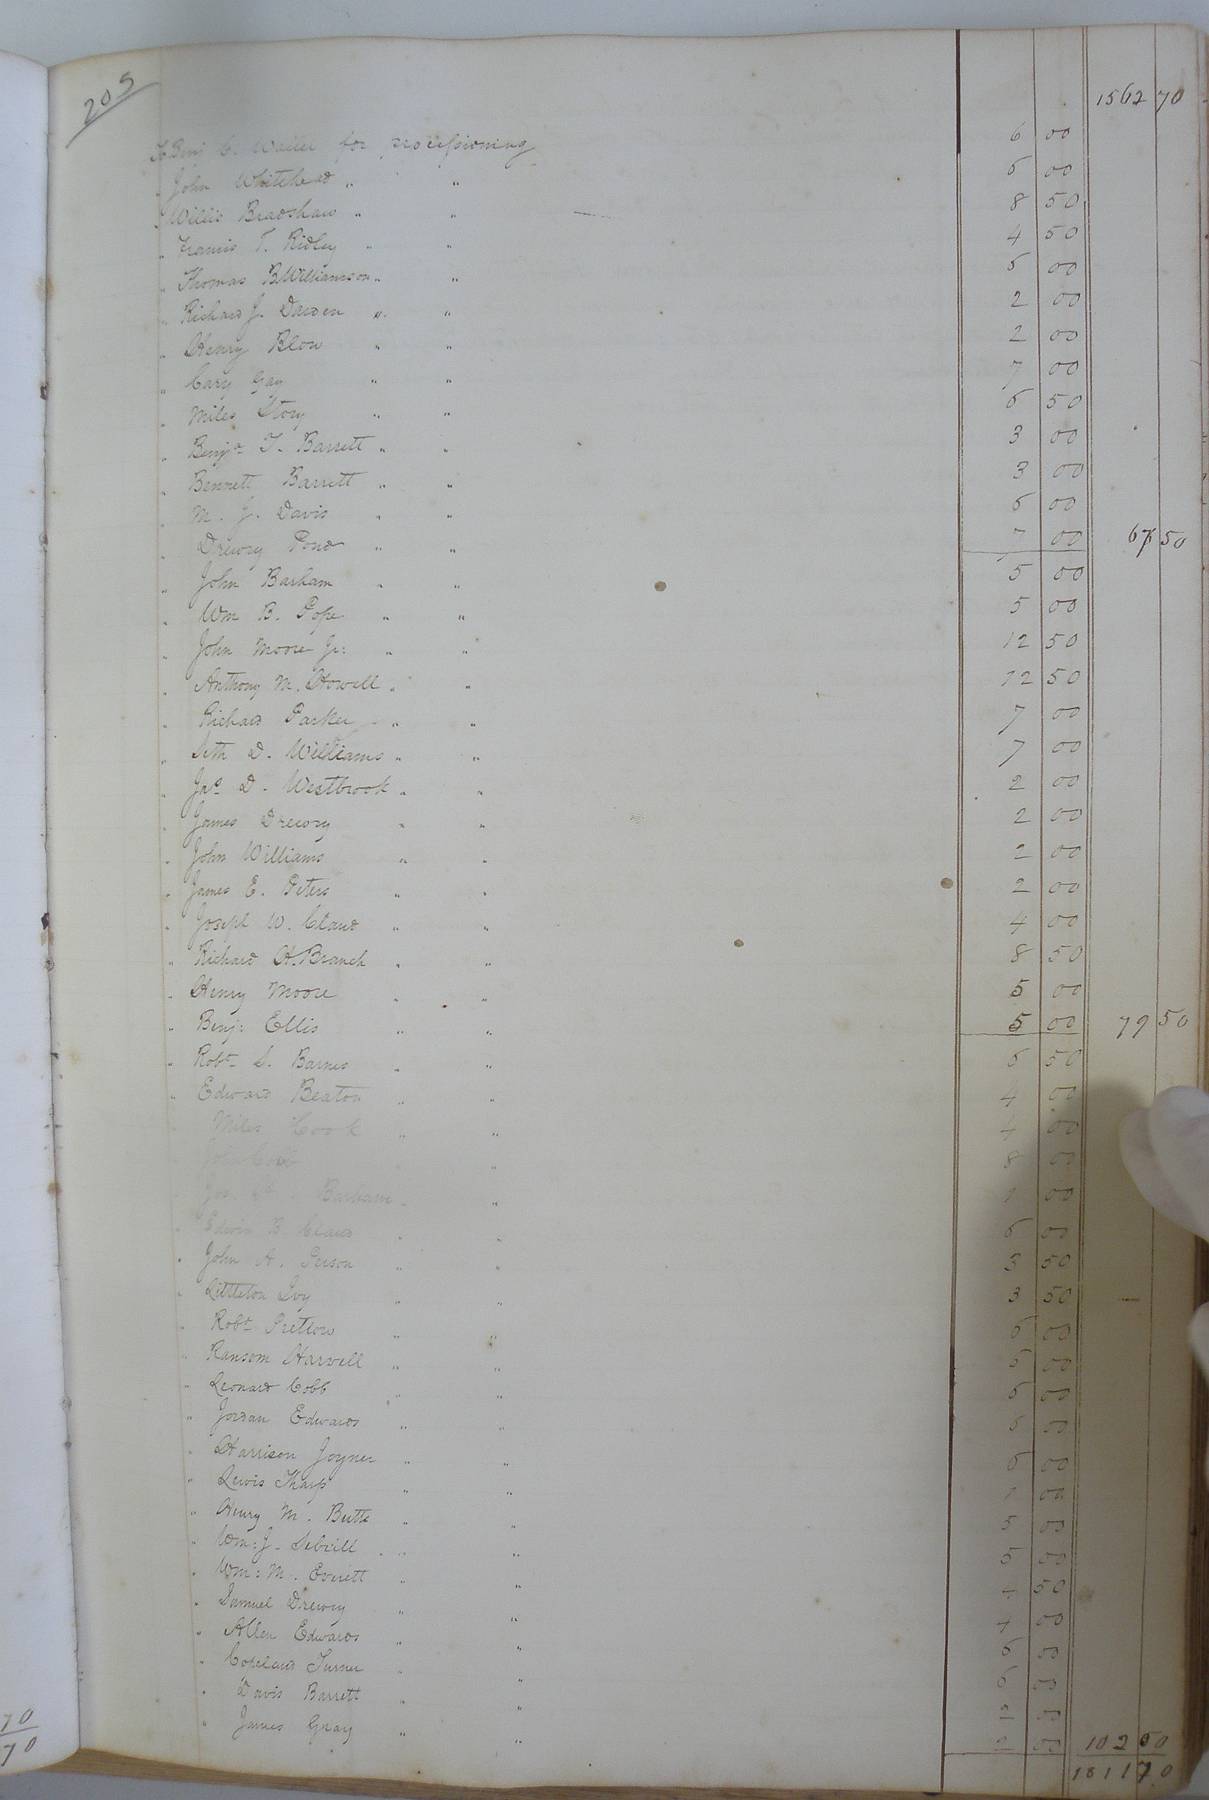 205
1562 70
To Benj C. Waller for processioning 6 00
" John Whitehead " " 00
" Willis Bradshaw " " 8 50
" Francis T. Ridley " " 4 50
" Thomas B Williamson " " 00
" Richard J. Darden " " 2 00
" Henry Blow " " 2 00
" Cary Gay " " 7 00
" Miles Story " " 50
" Benjn T. Barrett " " 3 00
" Bennett Barrett " " 3 00
" M. J. Davis " " 00
" Drewry Pond " " 7 00 67 50
" John Barham " " 5 00
" Wm B. Pope " " 5 00
" John Moore Jr: " " 12 50
" Anthony M. Howell " " 12 50
" Richard Parker " " 7 00
" Seth D. Williams " " 7 00
" Jas D. Westbrook " " 2 00
" James Drewry " " 2 00
" John Williams " " 2 00
" James E. Peters " " 2 00
" Joseph W. Claud " " 4 00
" Richard H. Branch " " 8 50
" Henry Moore " " 5 00
" Benj: Ellis " " 5 00 79 50
" Robt S. Barnes " " 50
" Edward Beaton " " 4 00
" Miles Cook " " 4 00
John Cobb " 8 00
Jos. Barham " " 00
" Edwin B. Claud " " 00
" John A. Person " " 3 50
" Littleton Ivy " " 3 50
" Robt Pretlow " " 00
" Ransom Harvell " " 5 00
" Leonard Cobb " " 00
" Jordan Edwards " " 00
" Harrison Joyner " " 00
" Lewis Tharp " " 00
" Henry M. Butts " " 5 00
" Wm: J. Sebrell " " 5 00
" Wm: M. Everett " " 4 50
" Samuel Drewry " " 4 00
" Allen Edwards " " 00
" Copeland Turner " " 00
" Davis Barrett " " 00
" James Gray " " 2 00 102 50
1811 70
70
70